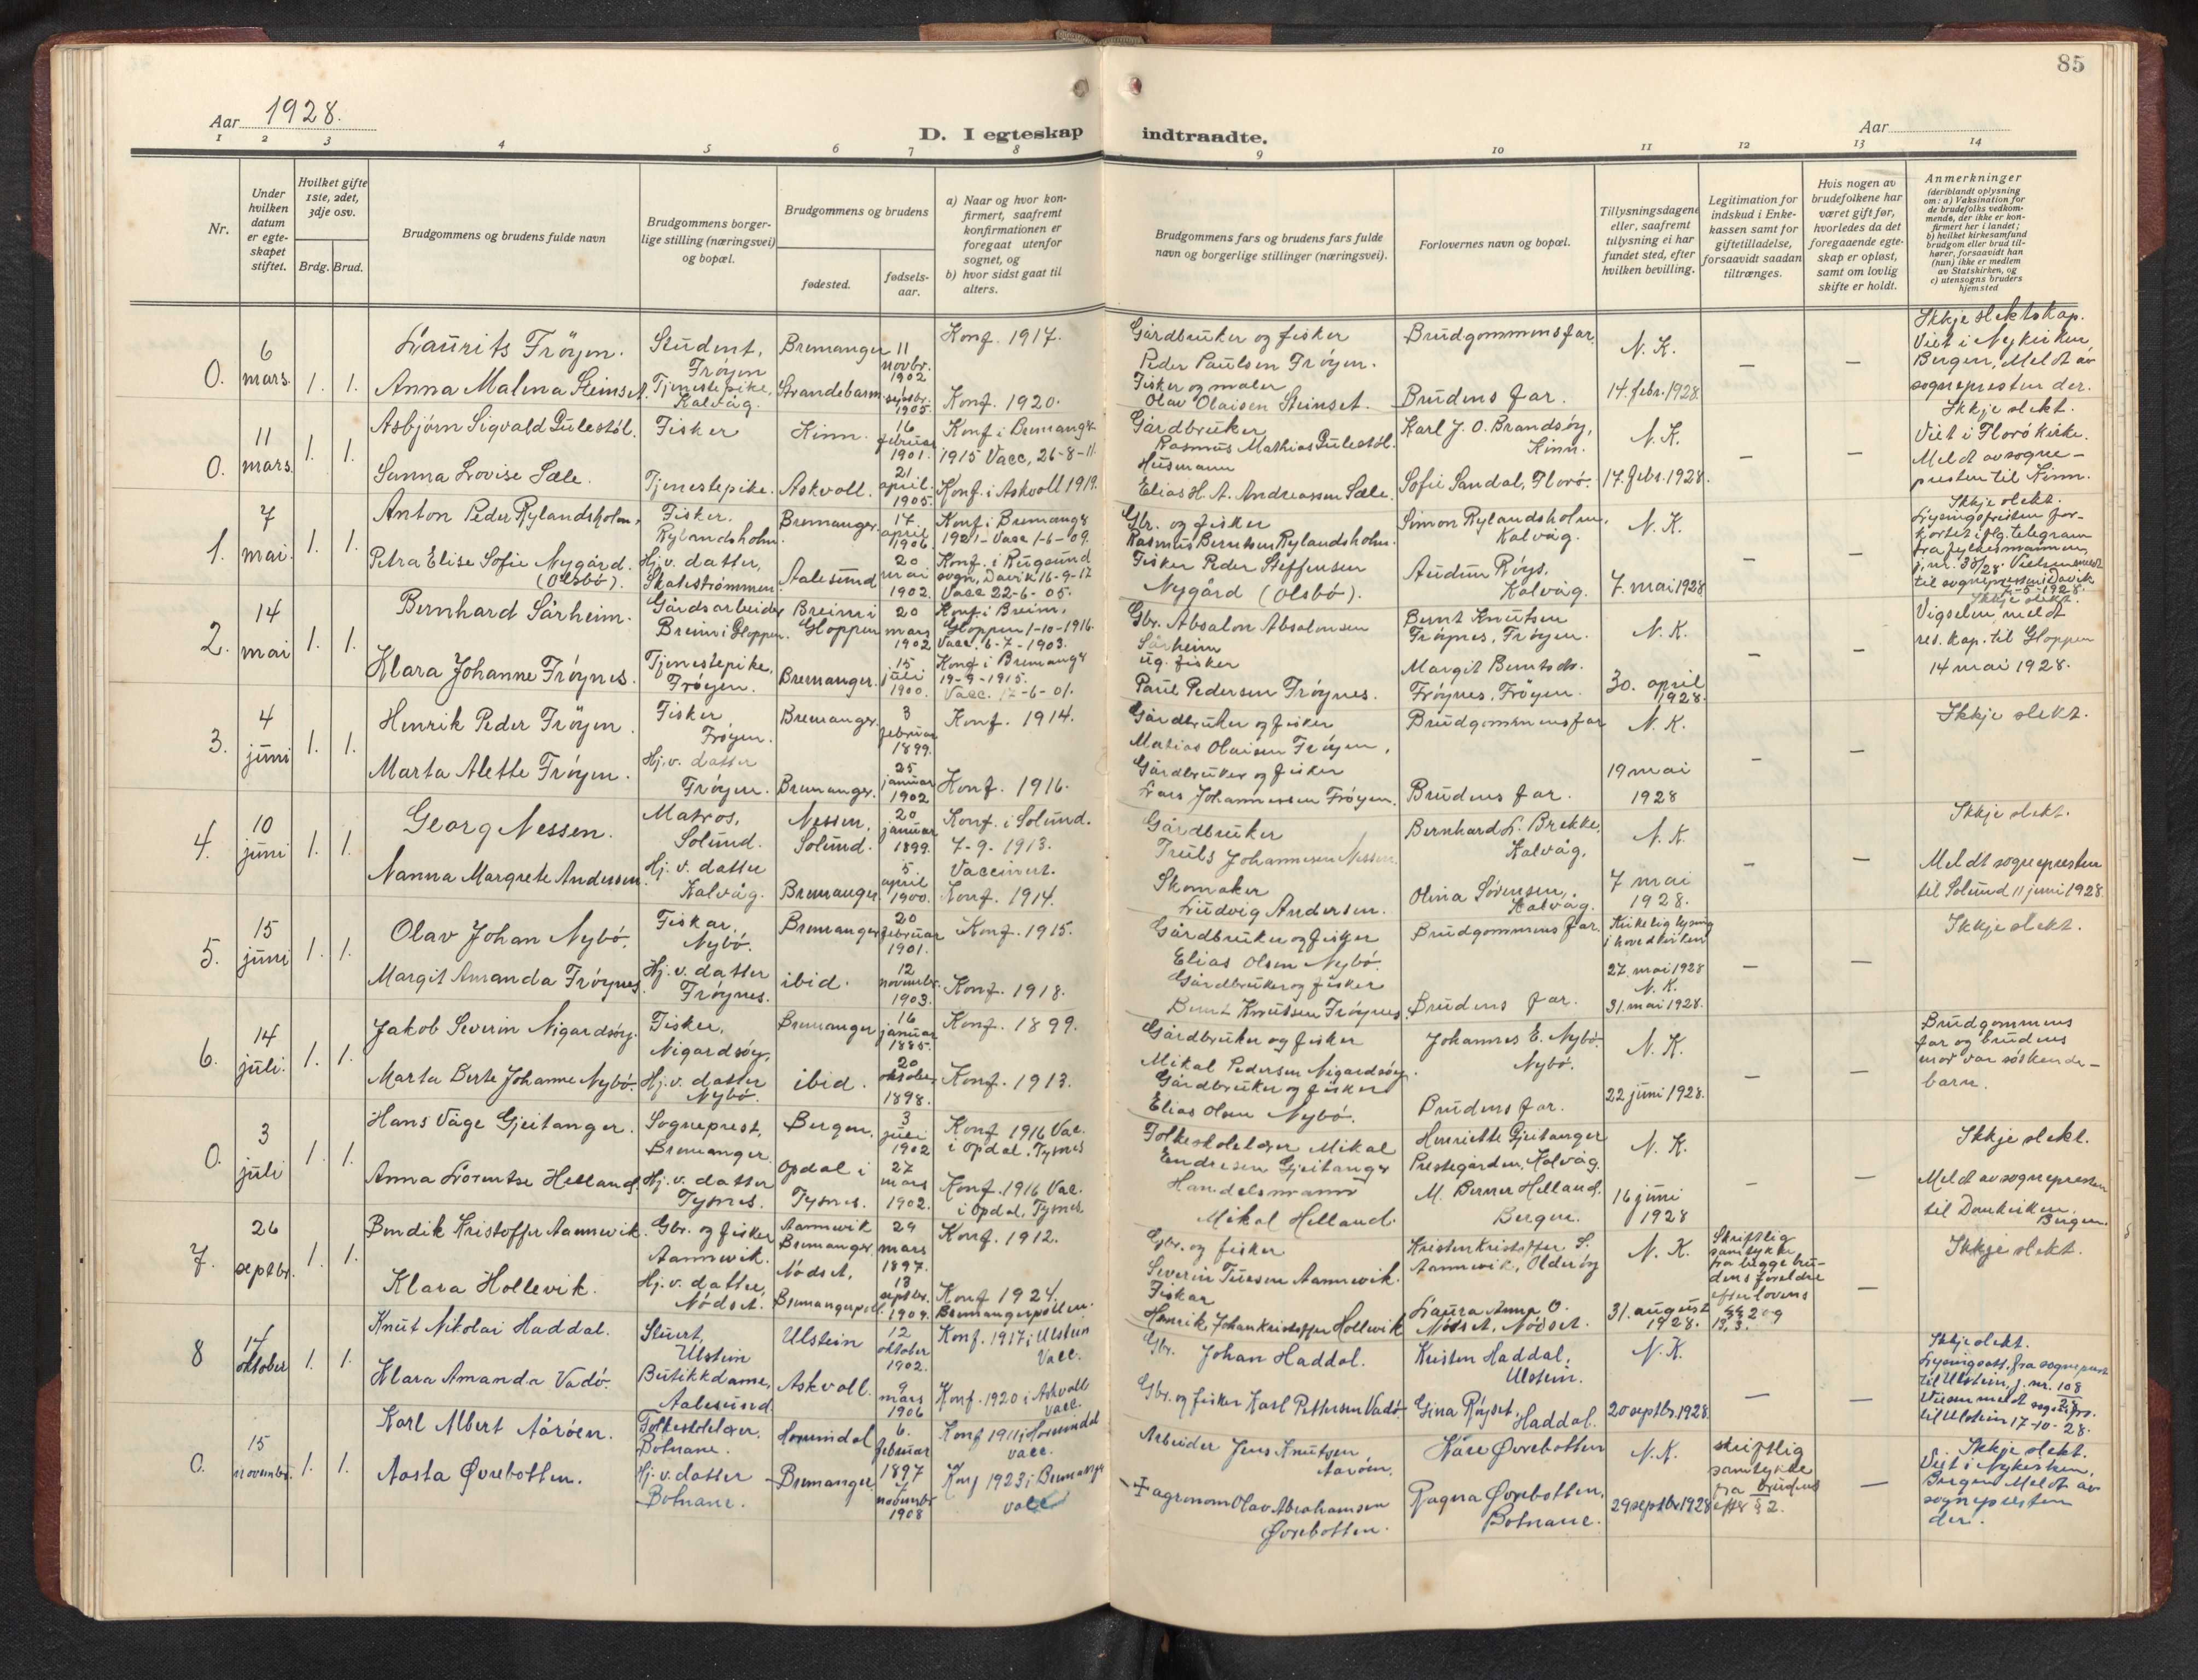 85
Aar 1928.
D. I egteskap indtraadte.
Aar
1 2 3 4 5 6 7 8 9 10 11 12 13 14
Nr.
Under hvilken datum er egteskapet stiftet.
Hvilket gifte 1ste, 2det, 3dje osv.
Brdg. Brud.
Brudgommens og brudens fulde navn
Brudgommens borgerlige stilling (næringsvei) og bopæl.
Brudgommens og brudens
fødested.
fødselsaar.
a) Naar og hvor konfirmert, saafremt konfirmationen er foregaat utenfor sognet, og
b) hvor sidst gaat til alters.
Brudgommens fars og brudens fars fulde navn og borgerlige stillinger (næringsvei).
Forlovernes navn og bopæl.
Tillysningsdagene eller, saafremt tillysning ei har fundet sted, efter hvilken bevilling.
Legitimation for indskud i Enkekassen samt for giftetilladelse, forsaavidt saadan tiltrænges.
Hvis nogen av brudefolkene har været gift før, hvorledes da det foregaaende egteskap er opløst, samt om lovlig skifte er holdt.
Anmerkninger
(deriblandt oplysning om: a) Vaksination for de brudefolks vedkommende, der ikke er konfirmert her i landet; b) hvilket kirkesamfund brudgom eller brud tilhører, forsaavidt han (hun) ikke er medlem av Statskirken, og c) utensogns bruders hjemsted
0. 6 mars. 1. 1.
Laurits Frøyen. Student, Frøyen Bremanger 11 novbr. 1902 Konf. 1917.
Gårdbruker og fisker Peder Paulsen Frøyen. Brudgommens far. N. K.
Anna Malena Steinset. Tjenestepike, Kalvåg. Strandebarm septbr. 1905. Konf. 1920.
Fisker og maler Olav Olaisen Steinset. Brudens far. 14. febr. 1928
Ikkje slektskap. Viet i Nykirken Bergen, Meldt av sognepresten der.
0. 11 mars. 1. 1.
Asbjørn Sigvald Gulestøl. Fisker Kinn. 16 februar 1901. Konf i Bremanger 1915 Vacc. 26-8-11.
Gårdbruker Rasmus Mathias Gulestøl. Karl J. O. Brandsøy, Kinn. N. K.
Sunna Lovise Sæle. Tjenestepike. Askvoll. 21 april 1905. Konf. i Askvoll 1919.
Husmann Elias H. A. Andreassen Sæle. Sofie Sandal, Florø. 17. febr. 1928.
Ikkje slekt. Viet i Florø kirke. Meldt av sognepresten til Kinn.
1. 7 mai. 1. 1.
Anton Peder Rylandsholm. Fisker. Rylandsholm. Bremanger. 17 april 1906 Konf i Bremanger 1921 - Vacc 1-6-09.
Gbr. og fisker Rasmus Berntsen Rylandsholm. Simon Rylandsholm, Kalvåg. N. K.
Petra Elise Sofie Nygård. (Olsbø). Hj. v. datter, Skatestrømmen. Aalesund 20 mai 1902. Konf. i Rugsund sogn, Davik 16-9-17 Vacc 22-6-05.
Fisker Peder Steffensen Nygård (Olsbø). Audun Røys, Kalvåg. 7 mai 1928
Ikkje slekt. Lysingsfristen forkortet iflg. telegram fra fylkesmannen j. nr. 38/28 Vielsen meldt til sognepresten i Davik 7-5-1928.
2. 14 mai 1. 1.
Bernhard Sårheim. Gårdsarbeider Breim i Gloppen. Breim i Gloppen 20 mars 1902 Konf. i Breim, Gloppen 1-10-1916. Vacc. 6-7-1903.
Gbr. Absalon Absalonsen Sårheim Bernt Knutsen Frøynes, Frøyen. N. K.
Klara Johanne Frøynes. Tjenestepike, Frøyen. Bremanger. 15 juli 1900. Konf. i Bremanger 19-9-1915. Vacc. 17-6-01.
ug. fisker Paul Pedersen Frøynes. Margit Berntsdt. Frøynes, Frøyen. 30. april 1928.
Ikkje slekt. Vigselen meldt res. kap. til Gloppen 14 mai 1928.
3. 4 juni 1. 1.
Henrik Peder Frøyen. Fisker, Frøyen. Bremanger. 3 februar 1899. Konf. 1914.
Gårdbruker og fisker Matias Olaisen Frøyen, Brudgommens far N. K.
Marta Alette Frøyen. Hj. v. datter Frøyen. Bremanger. 25 januar 1902 Konf. 1916.
Gårdbruker og fisker Lars Johannessen Frøyen. Brudens far. 19 mai 1928
Ikkje slekt.
4. 10 juni 1. 1.
Georg Nessen. Matros, Solund. Nessen, Solund. 20 januar 1899. Konf. i Solund. 7-9-1913. Vaccinert.
Gårdbruker Truls Johannesen Nessen. Bernhard L. Brekke, Kalvåg. N. K.
Nanna Margrete Andersen. Hj. v. datter Kalvåg. Bremanger. 5 april 1900. Konf. 1914.
Skomaker Ludvig Andersen. Olina Sørensen, Kalvåg. 7 mai 1928.
Ikkje slekt. Meldt sognepresten til Solund 11 juni 1928
5. 15 juni 1. 1.
Olav Johan Nybø. Fiskar, Nybø. Bremanger 20 februar 1901. Konf. 1915.
Gårdbruker og fisker Elias Olsen Nybø. Brudgommens far. Kirkelig lysing i hovedkirken 27. mai 1928
Margit Amanda Frøynes Hj. v. datter Frøynes. ibid. 12 novembr. 1903. Konf. 1918.
Gårdbruker og fisker Bernt Knutsen Frøynes Brudens far. N. K. 31. mai 1928.
Ikkje slekt.
6. 14 juli. 1. 1.
Jakob Severin Nigardsøy. Fisker, Nigardsøy, Bremanger 16 januar 1885. Konf. 1899.
Gårdbruker og fisker Mikal Pedersen Nigardsøy. Johannes E. Nybø. Nybø. N. K.
Marta Berte Johanne Nybø. Hj. v. datter Nybø. ibid. 20 oktober 1898. Konf. 1913.
Gårdbruker og fisker Elias Olsen Nybø. Brudens far. 22 juni 1928.
Brudgommens far og brudens mor var søskendebarn.
0. 3 juli 1. 1.
Hans Våge Gjeitanger. Sogneprest, Bremanger Bergen, 3 juli 1902 Konf 1916 Vac. i Opdal. Tysnes
Folkeskolelærer Mikal Endresen Gjeitanger Henriette Gjeitanger Prestegården, Kalvåg. N. K.
Anna Lorentse Helland. Hj. v. datter Tysnes. Opdal i Tysnes. 27 mars 1902. Konf. 1916 Vac. i Opdal, Tysnes
Handelsmann Mikal Helland. M. Berner Helland. Bergen. 16 juni 1928
Ikkje slekt. Meldt av sognepresten til Domkirken. Bergen.
7. 26 septbr. 1. 1.
Bendik Kristoffer Aannevik. Gbr. og fisker Aannevik. Aannevik Bremanger 29 mars 1897. Konf. 1912.
Gbr. og fisker Severin Turesen Aannevik. Kristen Kristoffer S. Aannevik, Olderøy N. K.
Klara Hollevik. Hj. v. datter, Nødset. Nødset, Bremangerpoll. 13 septbr. 1909. Konf 1924. Bremangerpollen.
Fiskar Henrik Johan Kristoffer Hollevik Laura Anna O. Nødset, Nødset. 31. august 1928.
Skriftlig samtykke fra begge brudens foreldre efter lovens §§ 2 og 13, 3.
Ikkje slekt.
8 14 oktober 1. 1.
Knut Nikolai Haddal. Stuert, Ulstein Ulstein 12 oktober 1902. Konf. 1917 i Ulstein Vacc.
Gbr. Johan Haddal. Kristen Haddal, Ulstein. N. K.
Klara Amanda Vadø. Butikkdame, Aalesund Askvoll. 9 mars 1906 Konf. 1920 i Askvoll Vacc.
Gbr. og fisker Karl Pettersen Vadø. Gina Røyset, Haddal. 20 septbr. 1928.
Ikkje slekt. Lysingsatt. fra sogneprest til Ulstein, j. nr. 108/28 Vielsen meldt sognepr. til Ulstein 17-10-28.
0. 15 novembr. 1. 1.
Karl Albert Aarøen. Folkeskolelærer. Botnane. Hornindal 6. februar 1897 Konf 1911 i Hornindal vacc.
Arbeider Jens Knutsen Aarøen. Kåre Øvrebotten N. K.
Aasta Øvrebotten. Hj. v. datter Botnane. Bremanger 7 novembr. 1908 Konf 1923 i Bremanger vacc
agronom Olav Abrahamsen Øvrebotten. Ragna Øvrebotten, Botnane. 29 septbr 1928
skriftlig samtykke fra brudens efter § 2.
Ikkje slekt. Viet i Nykirken, Bergen Meldt av sognepresten der.